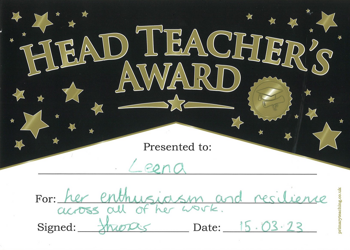 HEAD TEACHER'S
AWARD
Presented to:
Leena
For: her enthusiasm and resilience
across all of her work.
Signed:
Date: 15.03.23